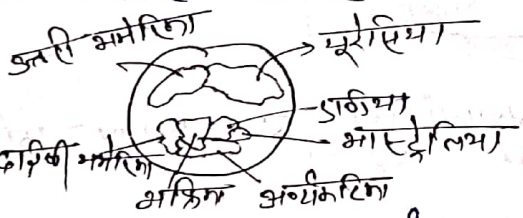 उत्तरी अमेरिका
यूरेसिया
इण्डिया
आस्ट्रेलिया
दक्षिणी अमेरिका
अफ्रिका
अण्टार्कटिका